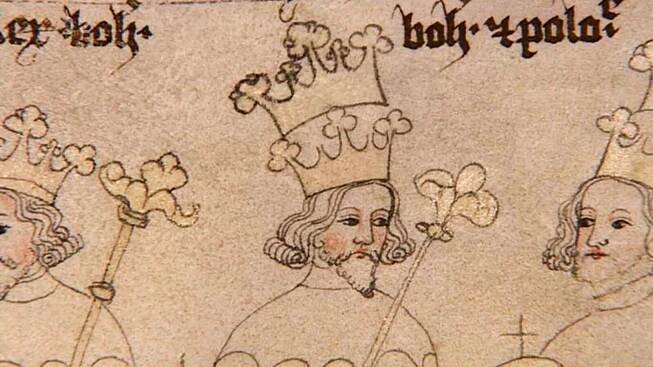 rex boh.
boh. ⁊ polo